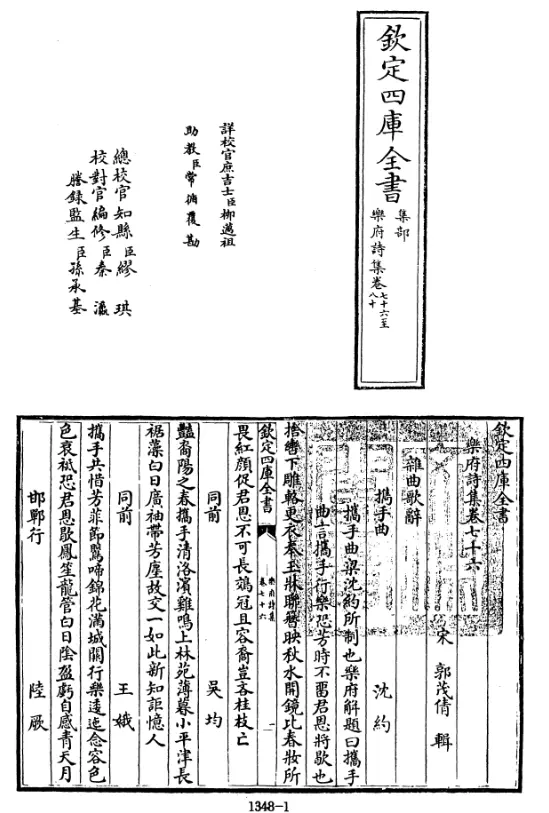 欽定四庫全書
集部
樂府詩集卷七十六至八十
詳校官庶吉士臣柳邁祖
助教臣常循覆勘
總校官知縣臣繆琪
校對官編修臣秦瀛
謄錄監生臣孫承基
欽定四庫全書
樂府詩集卷七十六
宋 郭茂倩 輯
雜曲歌辭
攜手曲 沈約
攜手曲梁沈約所制也樂府解題曰攜手
曲言攜手行樂恐芳時不留君恩將歇也
捨轡下雕輅更衣奉玉牀聯簪映秋水開鏡比春妝所
欽定四庫全書
樂府詩集
卷七十六
一
畏紅顏促君恩不可長鵕冠且容裔豈吝桂枝亡
同前 吳均
豔裔陽之春攜手清洛濱雞鳴上林苑薄暮小平津長
裾藻白日廣袖帶芳塵故交一如此新知詎憶人
同前 王娥
攜手共惜芳菲節鸎啼錦花滿城闕行樂逶迤念容色
色衰秪恐君恩歇鳳笙龍管白日陰盈虧自感青天月
邯鄲行 陸厥
1348-1